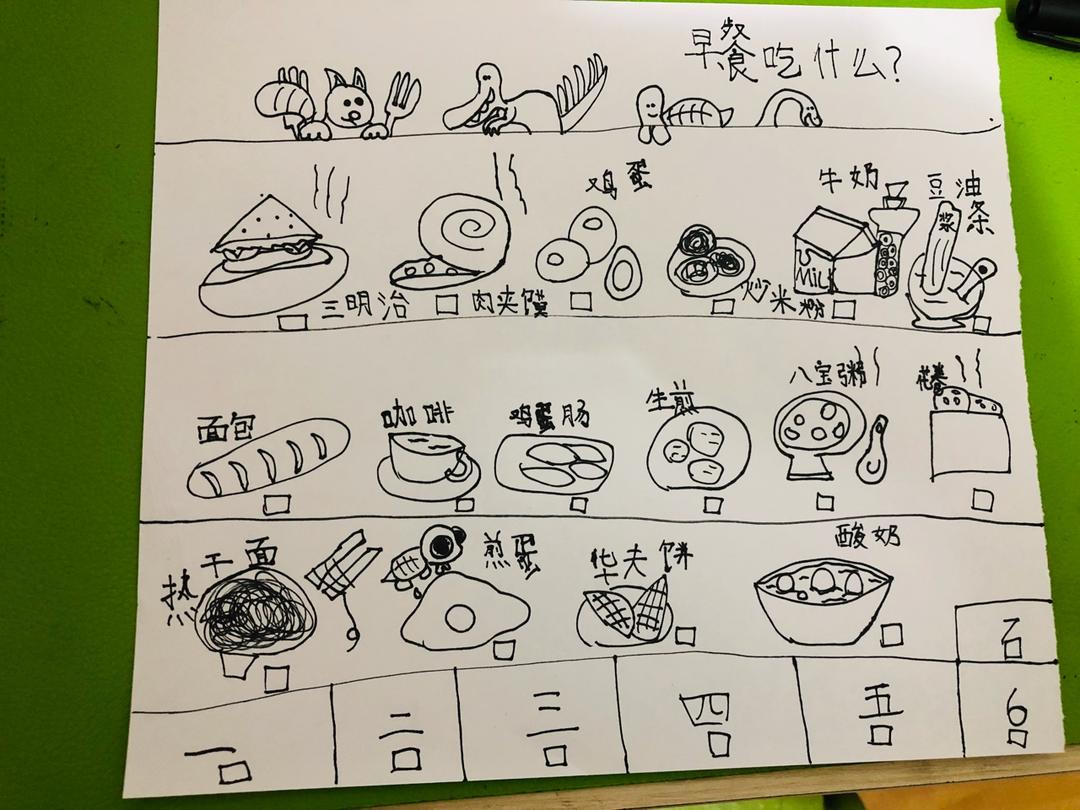 早餐吃什么？
鸡蛋
牛奶
豆浆
油条
MiLK
三明治
肉夹馍
炒米粉
面包
咖啡
鸡蛋肠
生煎
八宝粥
花卷
热干面
煎蛋
华夫饼
酸奶
一
二
三
四
五
6